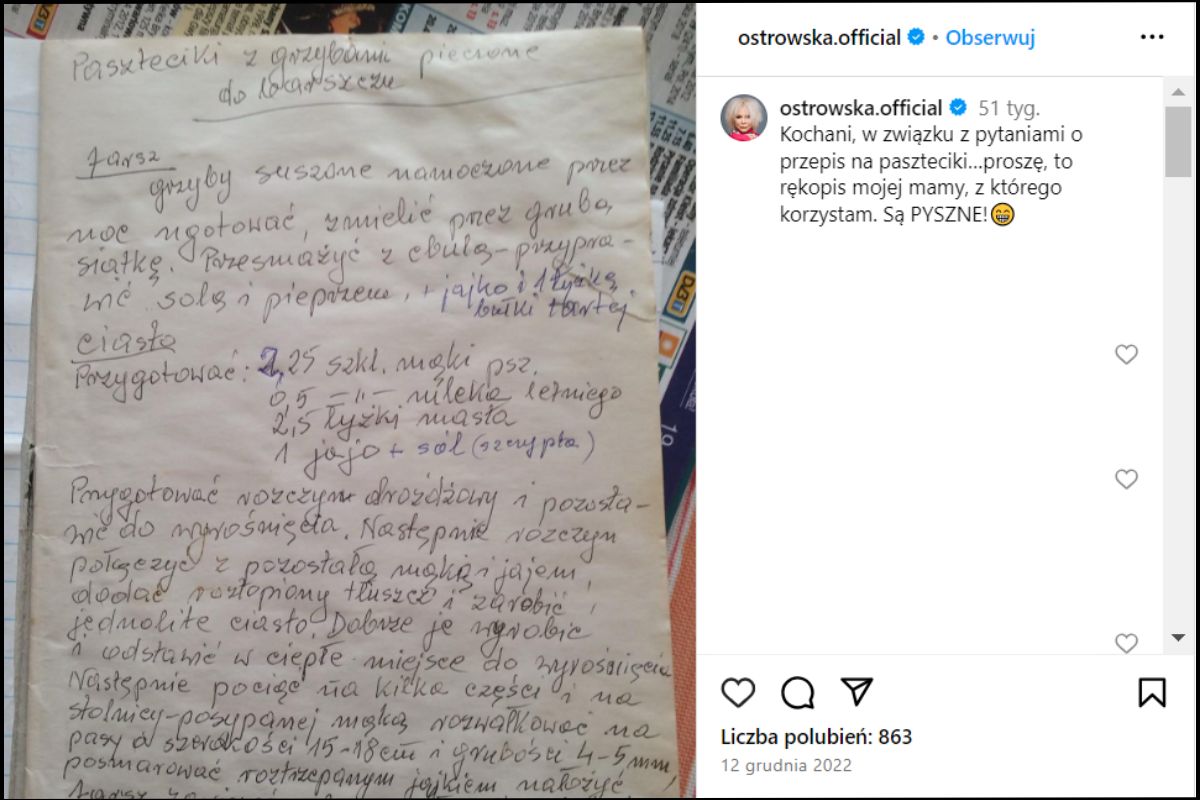 Paszteciki z grzybami pieczone
do barszczu
farsz
grzyby suszone namoczone przez
noc ugotować, zmielić przez grubą
siatkę. Przesmażyć z cebulą - przypra-
wić solą i pieprzem, + jajko i 1 łyżką
bułki tartej
ciasto
Przygotować: 2,25 szkl. mąki psz.
0,5 -"- mleka letniego
2,5 łyżki masła
1 jajo + sól (szczypta)
Przygotować rozczyn drożdżowy i pozosta-
wić do wyrośnięcia. Następnie rozczyn
połączyć z pozostałą mąką i jajem,
dodać roztopiony tłuszcz i zarobić
jednolite ciasto. Dobrze je wyrobić
i odstawić w ciepłe miejsce do wyrośnięcia
Następnie pociąć na kilka części i na
stolnicy posypanej mąką rozwałkować na
pasy o szerokości 15-18cm i grubości 4-5mm,
posmarować roztrzepanym jajkiem nałożyć
ostrowska.official • Obserwuj
ostrowska.official 51 tyg.
Kochani, w związku z pytaniami o
przepis na paszteciki...proszę, to
rękopis mojej mamy, z którego
korzystam. Są PYSZNE!😁
Liczba polubień: 863
12 grudnia 2022